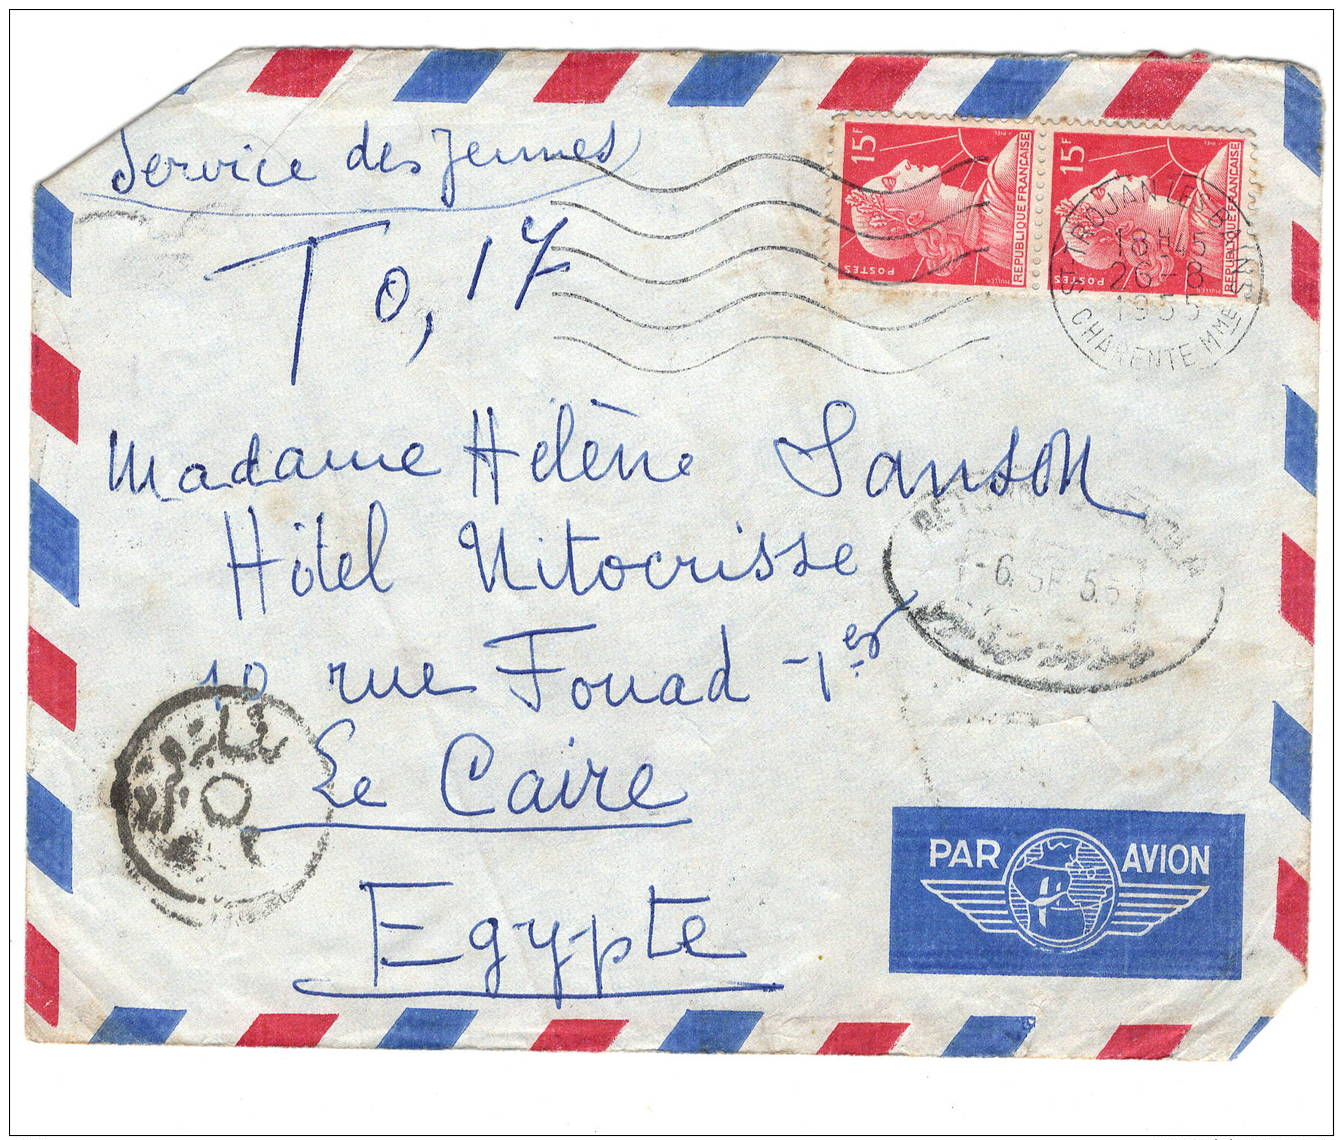 Service des Jeunes
T 0,17
15F
POSTES
REPUBLIQUE FRANÇAISE
MULLER
15F
POSTES
REPUBLIQUE FRANÇAISE
MULLER
ST TROJAN LES BAINS
18H45
26-8
1955
CHARENTE MME
Madame Hélène Sanson
Hôtel Nitocrisse
10 rue Fouad 1er
Le Caire
Egypte
-6.SE 55
PAR AVION